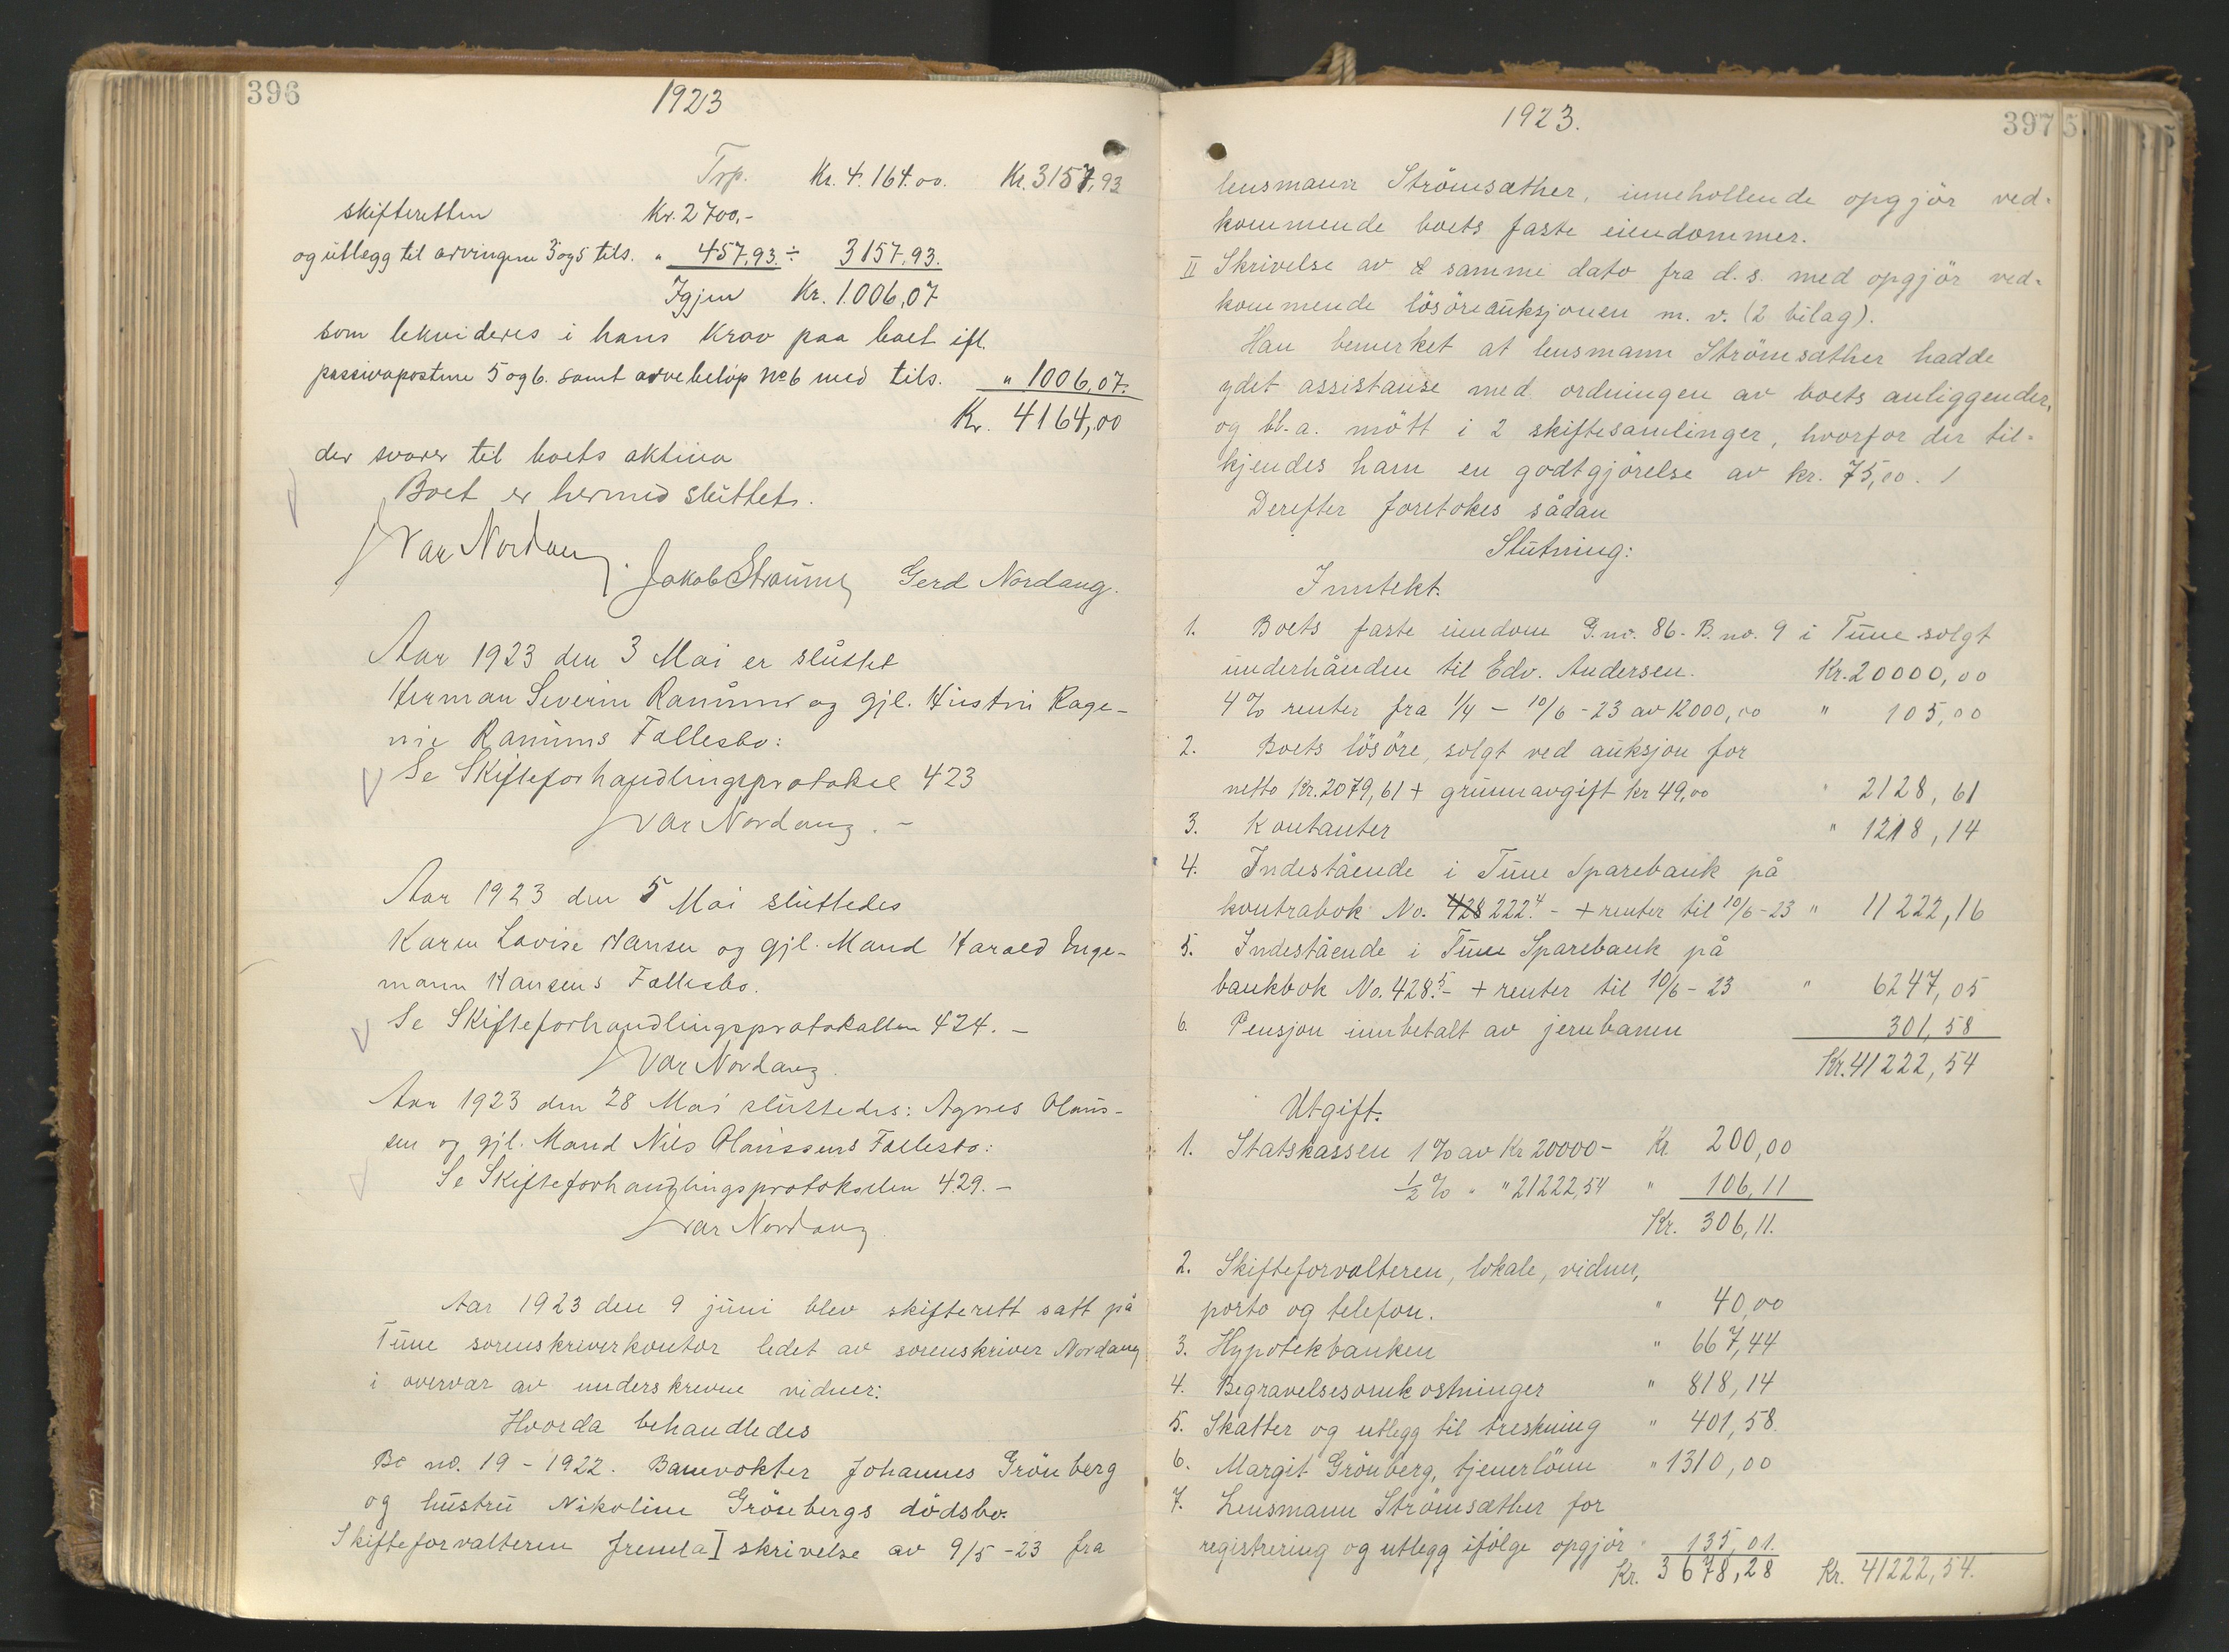 396
1923
Trp. Kr. 4.164.00. Kr. 3157,93
skifteretten Kr. 2700,-
og utlegg til arvingene 3 og 5 tils. " 457,93. ÷ 3157,93.
Igjen Kr. 1.006,07
som lekvideres i hans Krav paa boet ifl.
passivapostene 5 og 6. samt arvebeløp No 6 med tils. " 1006,07.
Kr. 4164,00
der svarer til boets aktiva
Boet er hermed sluttet.
Ivar Nordang. Jakob Straume Gerd Nordang.
Aar 1923 den 3 Mai er sluttet
Herman Severin og gjl. Hustru
Fællesbo:
Se Skifteforhandlingsprotokol 423
Ivar Nordang. -
Aar 1923 den 5 Mai sluttedes
Karen Lovise Hansen og gjl. Mand Harald Inge-
mann Hansens Fællesbo.
Se Skifteforhandlingsprotokollen 424. -
Ivar Nordang.
Aar 1923 den 28 Mai sluttedes: Agnes Olaus-
sen og gjl. Mand Nils Olaussens Fællesbo:
Se Skifteforhandlingsprotokollen 429. -
Ivar Nordang
Aar 1923 den 9 juni blev skifterett satt på
Tune sorenskriverkontor ledet av sorenskriver Nordang
i overvær av underskrevne vidner:
Hvorda behandledes
Bo no. 19 - 1922. Banevokter Johannes Grönberg
og hustru Nikoline Grönebergs dödsbo.
Skifteforvalteren fremla I skrivelse av 9/5 - 23 fra
1923.
397
5
lensmann Strömsæther, innehollende opgjör ved-
kommende boets faste eiendommer.
II Skrivelse av samme dato fra d. s. med opgjör ved-
kommende lösöreauksjonen m. v. (2 bilag).
Han bemerket at lensmann Strömsæther hadde
ydet assistanse med ordningen av boets anliggender,
og bl. a. mött i 2 skiftesamlinger, hvorfor der til-
kjendes ham en godtgjörelse av kr. 75,00. /
Derefter foretokes sådan
Slutning:
Inntekt.
1. Boets faste eiendom G. nr. 86 - B. no. 9 i Tune solgt
underhånden til Edv. Andersen. Kr. 20000,00
4 % renter fra 1/4 - 10/6 - 23 av 12000,00 " 105,00
2. Boets lösöre, solgt ved auksjon for
netto Kr. 2079,61 + grunnavgift kr 49,00 " 2128,61
3. Kontanter " 1218,14
4. Indestående i Tune Sparebank på
kontrabok No. 428 222.4 - + renter til 10/6 - 23 " 11222,16
5. Indestående i Tune Sparebank på
bankbok No. 428.5 - + renter til 10/6 - 23 " 6247,05
6. Pensjon innbetalt av jernbanen 301,58
Kr. 41222,54
Utgift.
1. Statskassen 1 % av Kr 20000 - Kr. 200,00
1/2 % " " 21222,54 " 106,11
Kr. 306,11.
2. Skifteforvalteren, lokale, vidner,
porto og telefon. " 40,00
3. Hypotekbanken " 667,44
4. Begravelsesomkostninger " 818,14
5. Skatter og utlegg til treskning " 401,58.
6. Margit Grönberg, tjenerlönn " 1310,00
7. Lensmann Strömsæther for
registrering og utlegg ifölge opgjör " 135,01.
Kr. 3678,28 Kr. 41222,54.